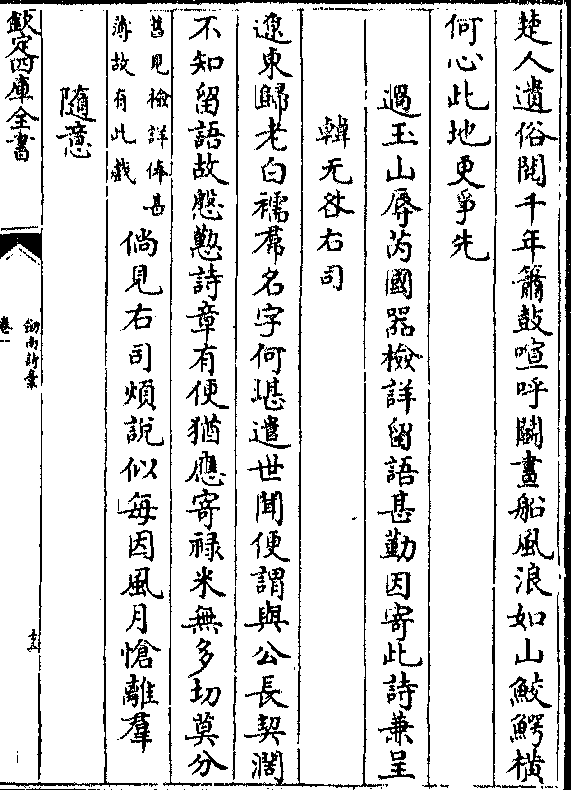 楚人遺俗閱千年簫鼓喧呼鬭畫船風浪如山鮫鰐橫
何心此地更爭先
過玉山辱芮國器檢詳留語甚勤因寄此詩兼呈
韓无咎右司
遼東歸老白襦裙名字何堪遣世聞便謂與公長契濶
不知留語故慇懃詩章有便猶應寄禄米無多切莫分
舊見檢詳俸甚
薄故有此戯
倘見右司煩說似每因風月愴離羣
隨意
欽定四庫全書
劍南詩稾
卷一